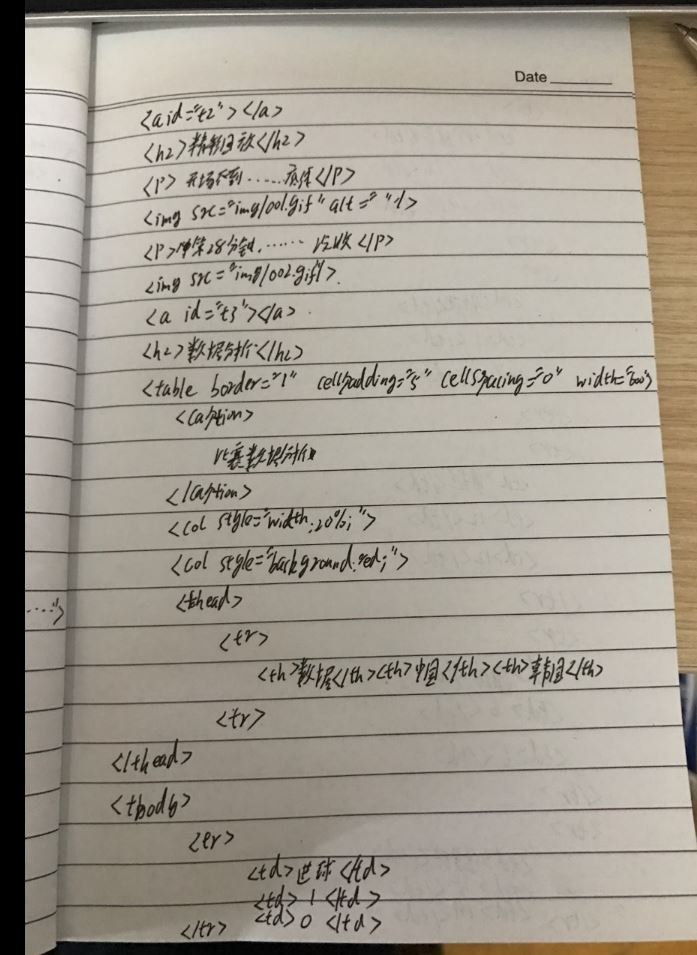 Date
<a id="t2"></a>
<h2>精彩回放</h2>
<P>开场不到......底线</P>
<img src="img/001.gif" alt=" "/>
<P>第28分钟,......没收</P>
<img src="img/002.gif/>
<a id="t3"></a>
<h2>数据分析</h2>
<table border="1" cellpadding="5" cellspacing="0" width="600">
<caption>
比赛数据分析
</caption>
<col style="width:20%;">
<col style="background:red;">
<thead>
<tr>
<th>数据</th><th>中国</th><th>韩国</th>
<tr>
</thead>
<tbody>
<tr>
<td>进球</td>
<td>1</td>
<td>0</td>
</tr>
....">